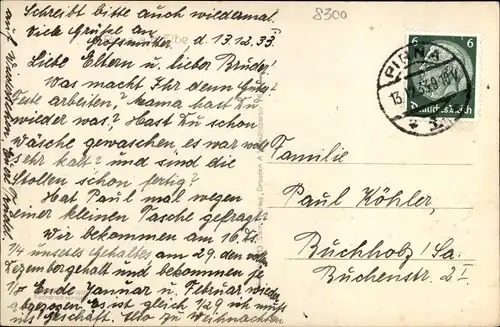 Schreibt bitte auch wiedermal.
Viele Grüße an
Großmutter, d. 13.12.33.
Liebe Eltern u. lieber Bruder!
Was macht Ihr denn Gutes?
Feste arbeiten? Mama hast Du
wieder was? Hast Du schon
Wäsche gewaschen, es war wohl
sehr kalt? und sind die
Stollen schon fertig?
Hat Paul mal wegen
einer kleinen Tasche gefragt?
Wir bekommen am 16.12.
14 unseres Gehaltes am 29. den vollen
Dezembergehalt und bekommen je
10 Ende Januar u. Februar wieder
abgezogen. Es ist gleich 129 ich muß
ins Geschäft. Also zu Weihnachten
auf Wiedersehen
8300
PIRNA
13.12.33
6 6
Deutsches Reich
Familie
Paul Köhler,
Buchholz/Sa.
Buchenstr. 2 I